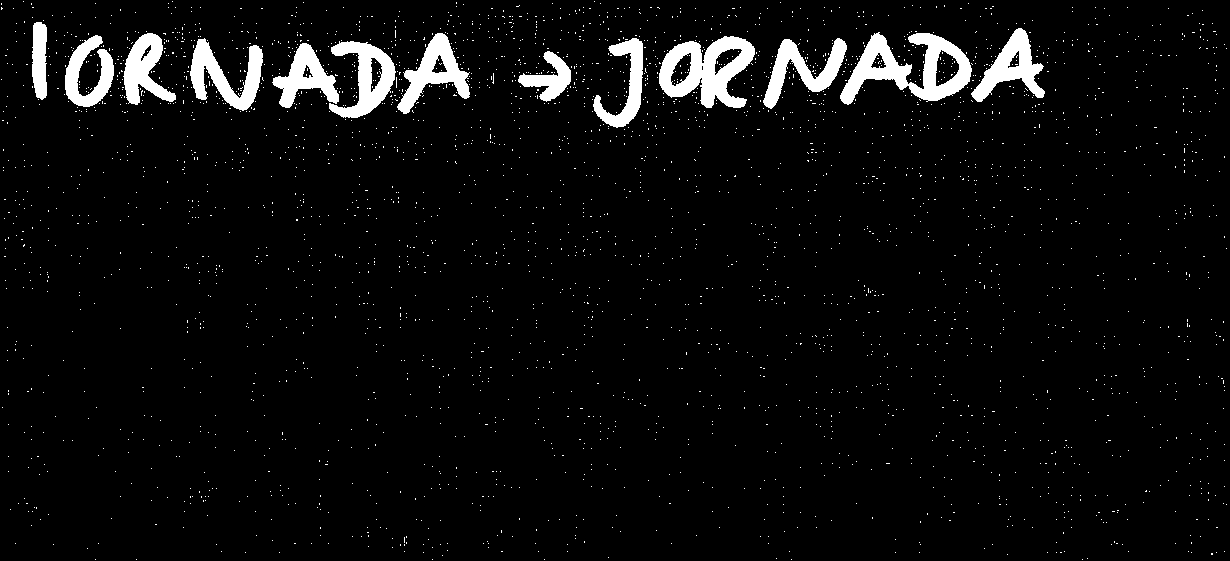 IORNADA → JORNADA